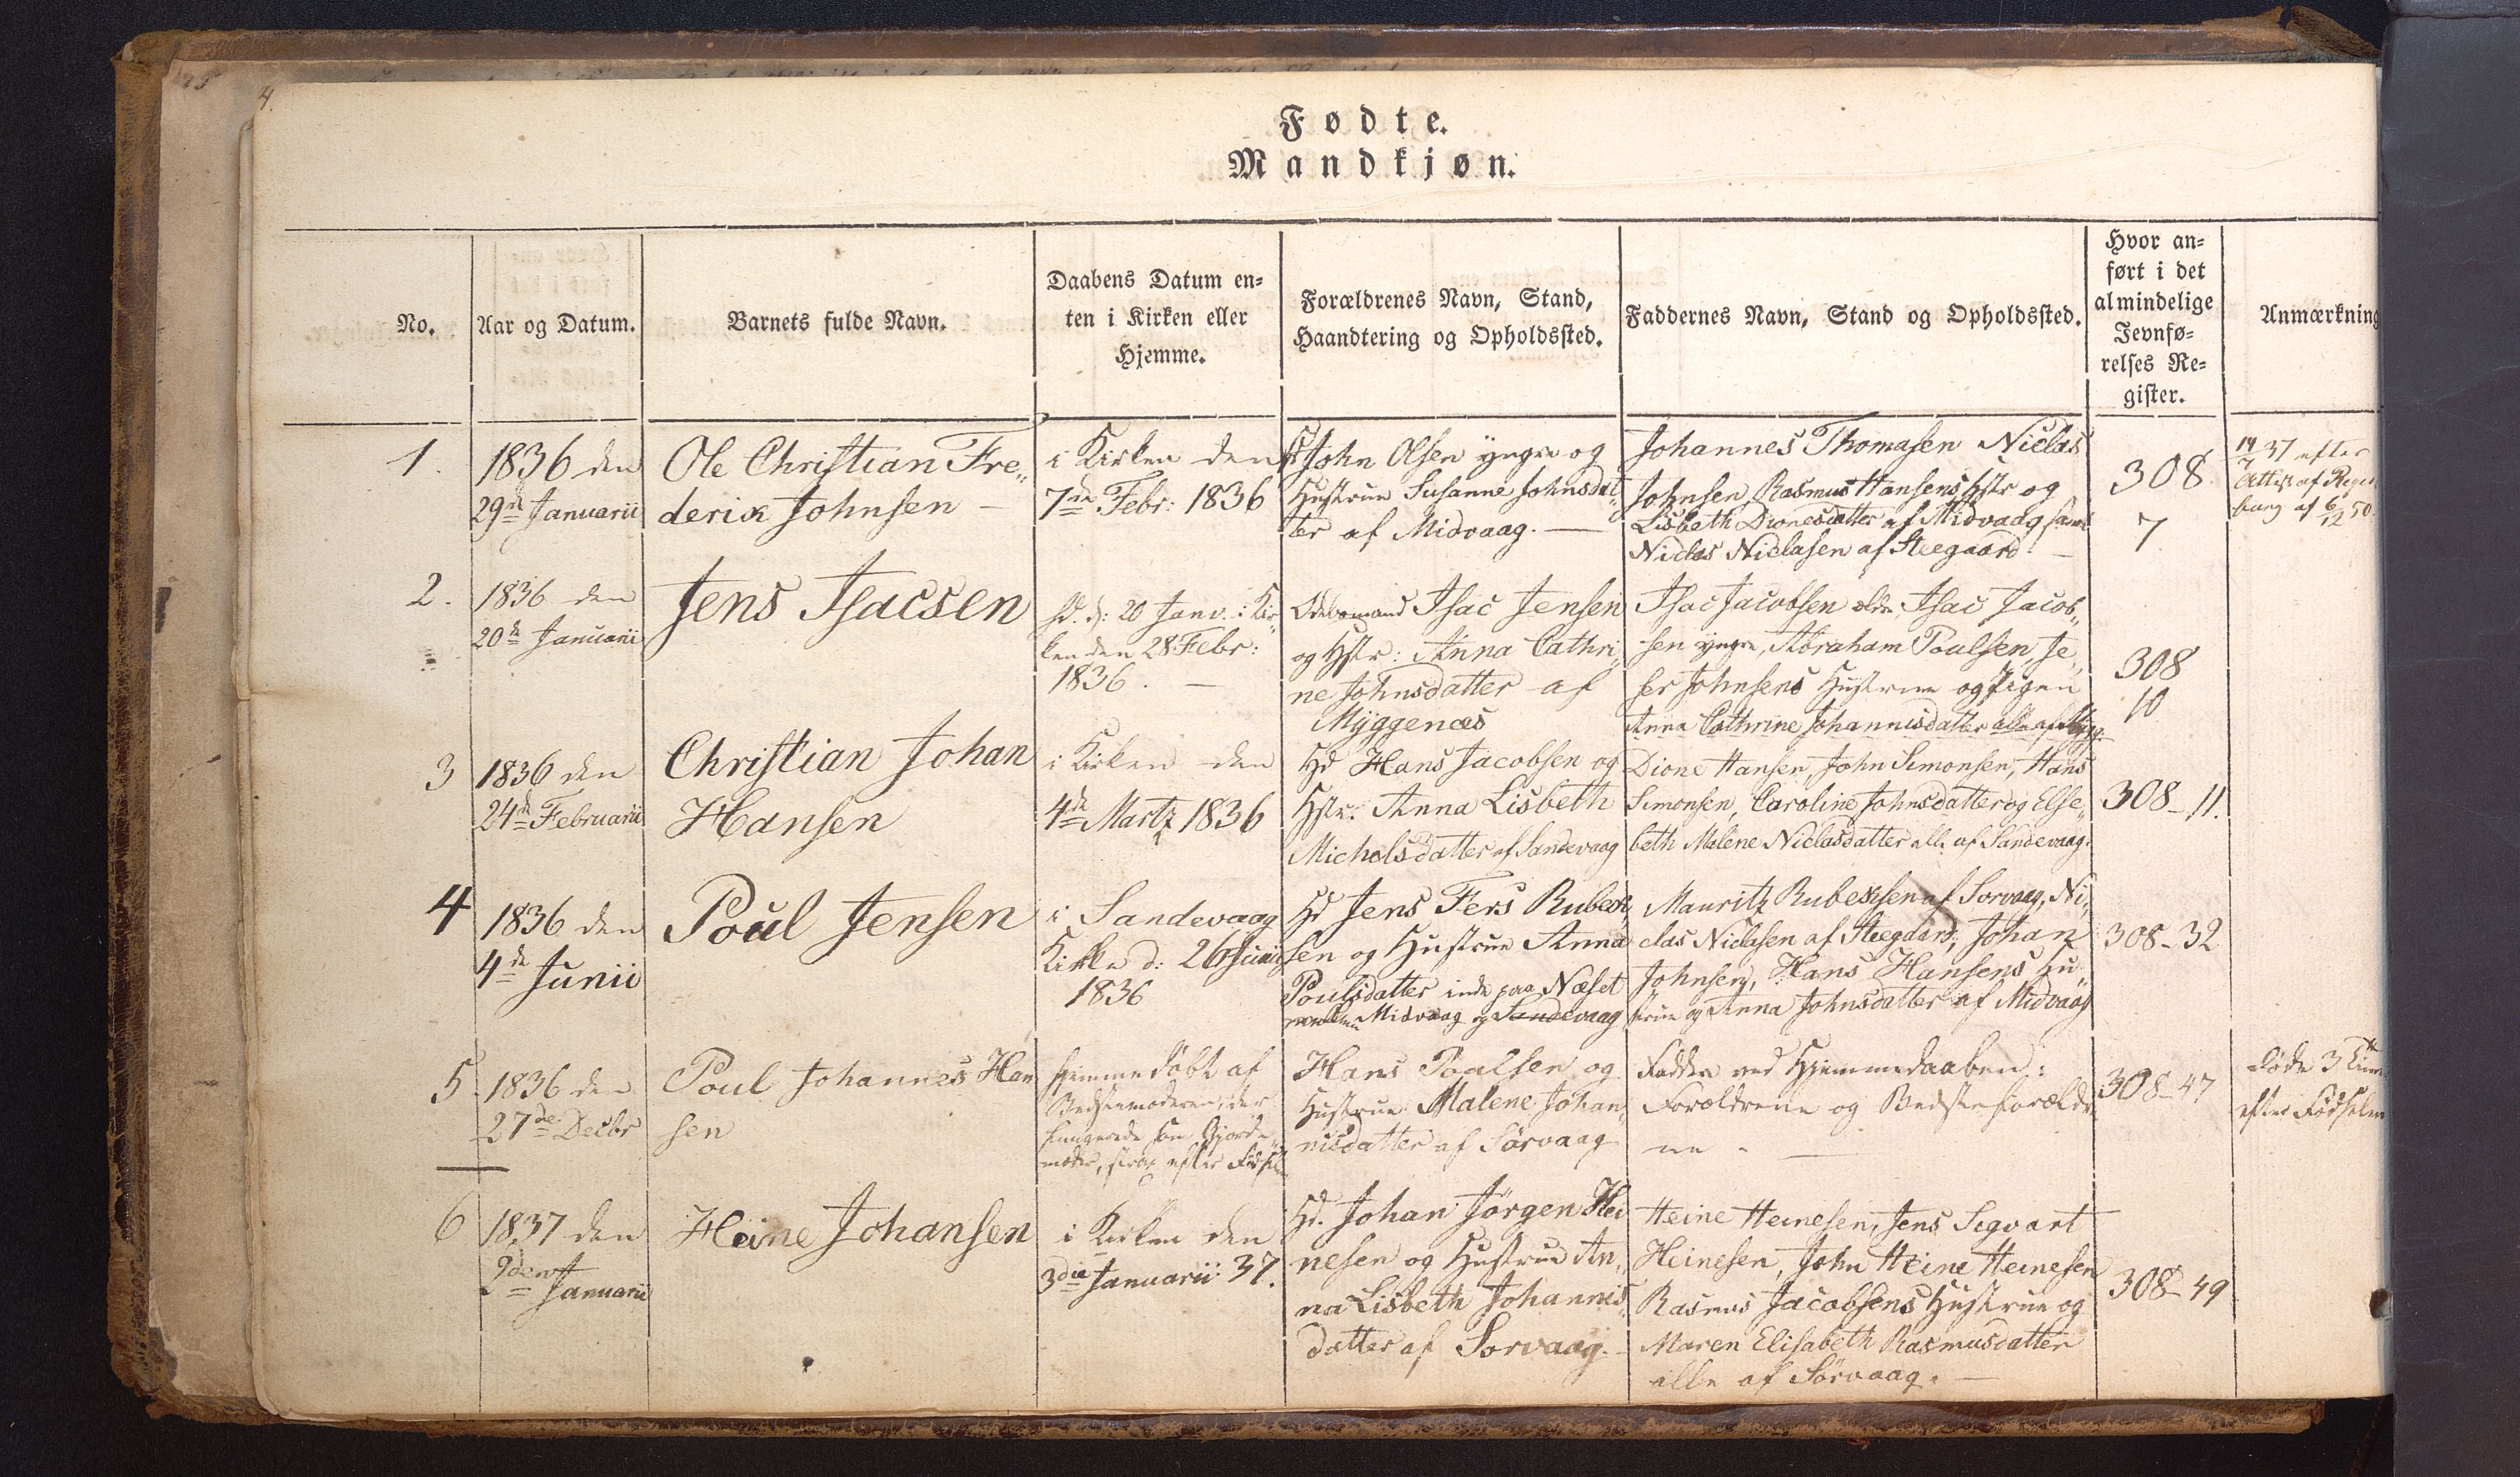 4.
Fødte.
Mandkjøn.
No.
Aar og Datum.
Barnets fulde Navn.
Daabens Datum en-
ten i Kirken eller
Hjemme.
Forældrenes Navn, Stand,
Haandtering og Opholdssted.
Faddernes Navn, Stand og Opholdssted.
Hvor an-
ført i det
almindelige
Jevnfø-
relses Re-
gister.
Anmærkning
1.
1836 den
29de Januarii
Ole Christian Fre-
derik Johnsen
i Kirken den
7de Febr: 1836
John Olsen yngre og
Hustrue Susanne Johnsdat-
ter af Midvaag.
Johannes Thomasen Niclas
Johnsen, Rasmus Hansens Hstr og
Lisbeth Dionesdatter af Midvaag samt
Niclas Niclasen af Steegaard
308
7
37 efter
Attest af
af 6/12 50.
2.
1836 den
20de Januarii
Jens Isacsen
Hd. d: 20 Janv. i Kir-
ken den 28 Febr:
1836.
Odelsmand Isac Jensen
og Hstr: Anna Cathri-
ne Johnsdatter af
Myggenæs
Isac Jacobsen ældre, Isac Jacob-
sen yngre, Abraham Poulsen, Je-
ser Johnsens Hustrue og Pigen
Anna Cathrine Johannisdatter alle af Mygg.
308
10
3
1836 den
24de Februarii
Christian Johan
Hansen
i Kirken den
4de Martz 1836
Hd Hans Jacobsen og
Hstr. Anna Lisbeth
Michelsdatter af Sandevaag
Dione Hansen, John Simonsen, Hans
Simonsen, Caroline Johnsdatter og Else-
beth Malene Niclasdatter alle af Sandevaag.
308-11.
4
1836 den
4de Junii
Poul Jensen
i Sandevaag
Kirke d: 26 Junii
1836
Hd Jens Fers Rubek-
sen og Hustrue Anna
Poulsdatter inde paa Næset
mellem Midvaag og Sandevaag
Mauritz Rubeksen af Sorvaag, Ni-
clas Niclasen af Steegaard, Johan
Johnsen, Hans Hansens Hu-
strue og Anna Johnsdatter af Midvaag
308-32
5.
1836 den
27de Decbr
Poul Johannes Han
sen
Hjemmedöbt af
Bedstemoderen, der
fungerede som Gjorde-
moder, strax efter Födselen
Hans Poulsen og
Hustrue Malene Johan-
nisdatter af Sörvaag
Faddere ved Hjemmedaaben:
Forældrene og Bedsteforældre
ne.
308-47
Döde 3 Timer
efter Födselen
6
1837 den
Januarii
Heine Johansen
i Kirken den
3die Januarii 37.
Hd. Johan Jörgen Hei
nesen og Hustrue An-
na Lisbeth Johannis-
datter af Sorvaag.
Heine Heinesen, Jens Sigvart
Heinesen, John Heine Heinesen
Rasmus Jacobsens Hustrue og
Maren Elisabeth Rasmusdatter
alle af Sörvaag.
308-49